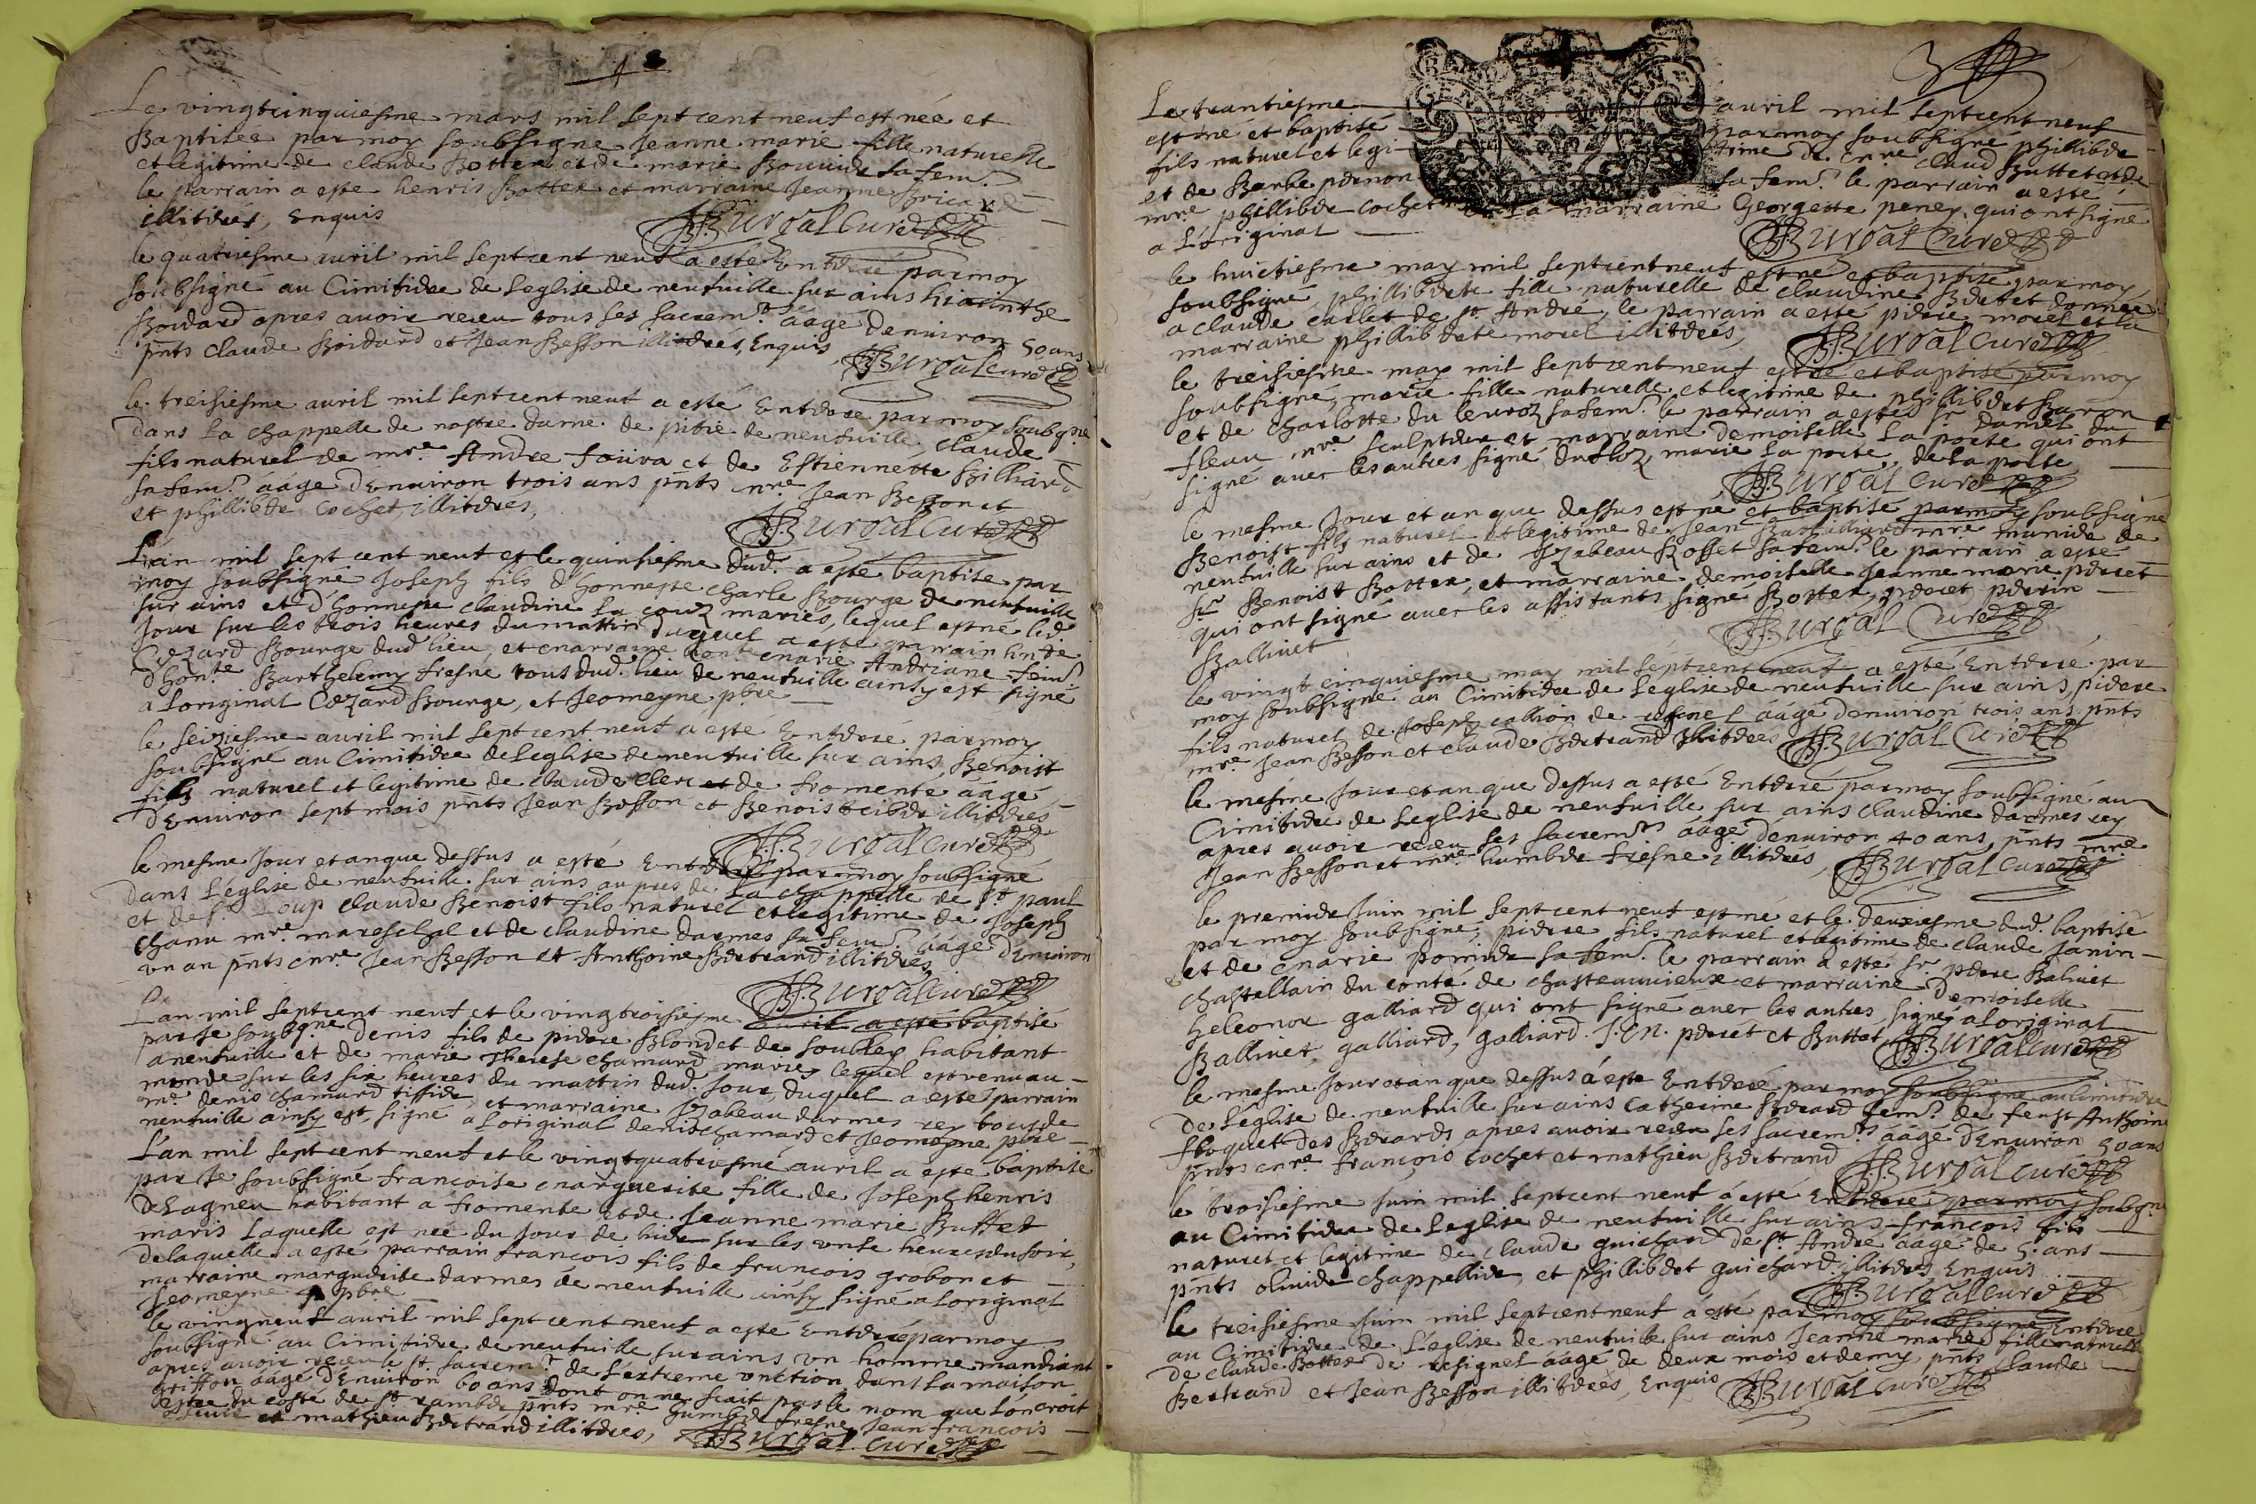 Le vingtcinquiesme mars mil sept cent neuf est née et
Baptisée par moy soubsigne Jeanne marie fille naturelle
et legitime de claude Botter et de marie Bouuide sa fem.
le parrain a este henris Botter et marraine Jeanne Bricard
illiterés, Enquis
Burgal Curé
le quatriesme auril mil sept cent neuf a esté Enterré par moy
soubsigné au Cimitiere de Leglise de neufuille sur ains hiacinthe
Boidard apres auoir receu tous ses sacremts. aagé denuiron 50 ans
pnts claude Boidard et Jean Besson illiterés, Enquis
Burgal Curé
le treisiesme auril mil sept cent neuf a esté Enterre par moy soubgne.
Dans la chappelle de nostre dame de pitié de neufuille, claude
fils naturel de mre. Andre foiura et de Estiennette Billiard
sa fem. aage d'Enuiron trois ans pnts mre. Jean Besson et
et phillibert Cochet, illiterés,
Burgal Curé
L'an mil sept cent neuf et le quinsiesme dud. a este baptise par
moy soubsigné Joseph fils d'honneste charle Bourge de neufuille
sur ains et d'honneste claudine La couz mariés, lequel est né led.
Jour sur les trois heures du mattin duquel a este parrain honte.
Cezard Bourge dud. lieu, et marraine honte. marie Andriane fem.
d'honte. Barthelemy fresne tous dud. lieu de neufuille ainsy est signé
a L'original Cezard Bourge, et Jeomeyne pbre
le seiziesme auril mil sept cent neuf a esté Enterré par moy
soubsigné au Cimitiere de Leglise de neufuille sur ains Benoist
fils naturel et legitime de claude clerc et de fromente áágé
d'Enuiron sept mois pnts Jean Besson et Benoist illiterés
Burgal Curé
le mesme Jour et an que dessus a esté Enterré par moy soubsigné
Dans L'église de neufuille sur ains au pres de La chappelle de St. paul
et de St. Loup claude Benoist fils naturel et legitime de Joseph
chanu mre. mareschal et de claudine darmes sa fem. áágé d'Enuiron
vn an pnts mre. Jean Besson et Anthoine Bertrand illiterés
Burgal Curé
L'an mil sept cent neuf et le vingtroisiesme auril a esté baptisé
par Je soubgné Denis fils de pierre Blondet de soubley habitant
a neufuille et de marie Therese chamard mariés lequel est venu au
monde sur les six heures du mattin dud. Jour, duquel a este parrain
mre. denis chamard tissier, et marraine Izabeau darmes rey tous de
neufuille ainsy est signé a L'original denis chamard et Jeomeyne pbre
L'an mil sept cent neuf et le vingtquatriesme auril a este baptisée
par Je soubsigné francoise marguerite fille de Joseph henris
de Lagneu habitant a fromente et de Jeanne marie Buffet
mariés Laquelle est née du Jour de hier sur les vnse heures du soir,
de laquelle a este parrain francois fils de francois grobon et
marraine marguerite darmes de neufuille ainsy signé a L'original
Jeomeyne pbre
le vingneuf auril mil sept cent neuf a esté Enterré par moy
soubsigné au Cimitiere de neufuille sur ains vn homme mandiant
apres auoir receu le st. sacremt. de L'extreme vnction dans la maison
griffon aagé d'Enuiron 60 ans dont on ne scait pas le nom que L'on croit
estre du costé de St. rambert pnts mre. humbert fresne Jean francois
et mathieu Bertrand illiterés,
Burgal curé
3
Le trantiesme auril mil sept cent neuf
est né et baptisé par moy soubsigné phillibert
fils naturel et legitime de mre. claud Buffet
et de Barbe pernon sa fem. le parrain a esté
mre. phillibert Cochet et La marraine Georgette peney, qui ont signé
a L'original
Burgal Curé
le huictiesme may mil sept cent neuf est né et baptisé par moy
soubsigné phillibarte fille naturelle de claudine Buffet donnée
a claude carlet de St. André, le parrain a esté pierre morel et la
marraine phillibarte morel illiterés,
Burgal Curé
le treisiesme may mil sept cent neuf est né et baptise par moy
soubsigné, marie fille naturelle et legitime de phillibert Baron
et de Charlotte du leuroz sa fem. le parrain a esté sr. daniel du
fleau mre. sculpteur et marraine demoiselle La porte qui ont
signé auec les autres signé marie La porte, de La porte
Burgal Curé
le mesme Jour et an que dessus est né et baptisé par moy soubsigné
Benoist fils naturel et legitime de Jean mre. munier de
neufuille sur ains et de Izabeau Rosset sa fem. le parrain a esté
sr. Benoist Botter, et marraine demoiselle Jeanne marie peret
qui ont signé auec les assistants signé Botter, peret, perrin
Balliuet
Burgal Curé
le vingt cinquiesme may mil sept cent neuf a esté Enterré par
moy soubsigné au Cimitiere de Leglise de neufuille sur ains, pierre
fils naturel de Joseph callion de resignel áágé d'enuiron trois ans pnts
mre. Jean Besson et claude Bertrand illiterés
Burgal Curé
le mesme Jour et an que dessus a esté Enterré par moy soubsigné au
Cimitiere de Leglise de neufuille sur ains claudine darmes rey
apres auoir receu ses sacremts. áágé denuiron 40 ans, pnts mre.
Jean Besson et mre. humber fresne illiterés,
Burgal Curé
le premier Juin mil sept cent neuf est né et le deuxiesme dud. baptisé
par moy soubsigné, pierre fils naturel et legitime de claude Janin
et de marie pomier sa fem. le parrain a esté sr. pierre Baliuet
chastellain du conté de chasteauuieux et marraine Demoiselle
heleonor galliard qui ont signé auec les autres, signés a L'original
Balliuet, galliard, galliard. J. M. peret et Buttet
Burgal Curé
le mesme Jour et an que dessus á esté Enterré par moy soubsigné au Cimitiere
De L'église de neufuille sur ains Catherine Berard fem. de feu st. Anthoine
floquet des Berards apres auoir receu ses sacremts. áágé d'Enuiron 50 ans
pnts mre. francois Cochet et mathieu Bertrand
Burgal Curé
le troisiesme Juin mil sept cent neuf á esté Enterré par moy soubgne.
au Cimitiere de Leglise de neufuille sur ains francois fils
naturel et legitime de claude guichard de St. Andre áagé de 5. ans
pnts oliuier chappellier, et phillibert guichard, illiterés Enquis
Burgal Curé
le treisiesme Juin mil sept cent neuf á esté par moy soubsigné Enterré
au Cimitiere de L'eglise de neufuille sur ains Jeanne marie fille naturelle
de claude Botter de resignel áágé de deux mois et demy, pnts Claude
Bertrand et Jean Besson illiterés, Enquis
Burgal Curé